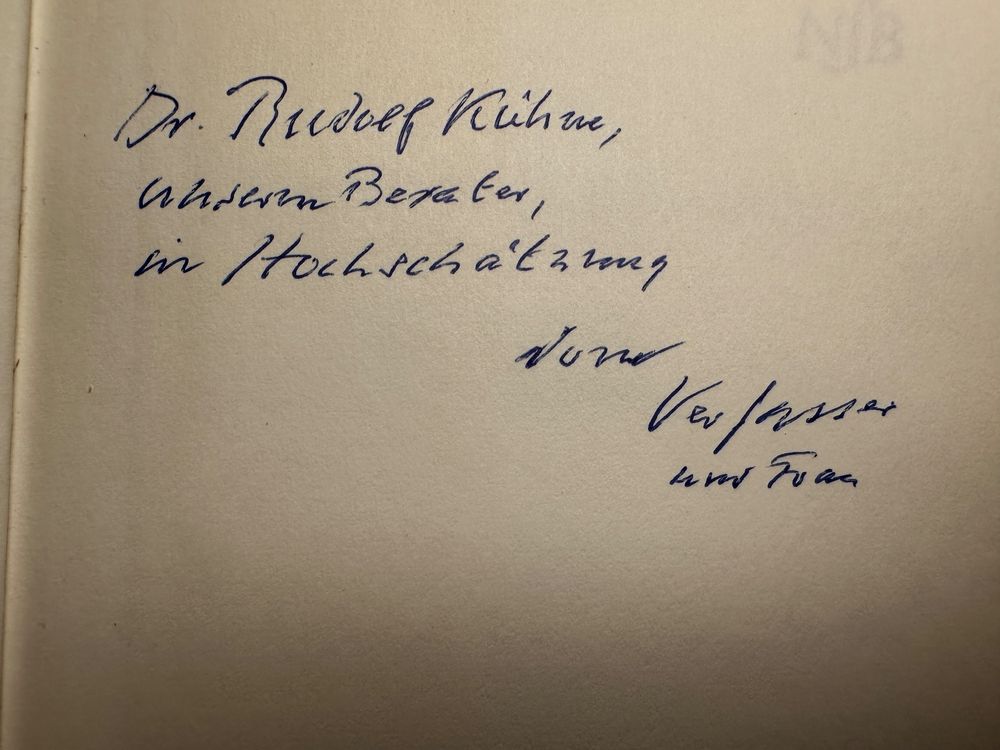 Dr. Rudolf Kühne,
unserm Berater,
in Hochschätzung
vom
Verfasser
und Frau